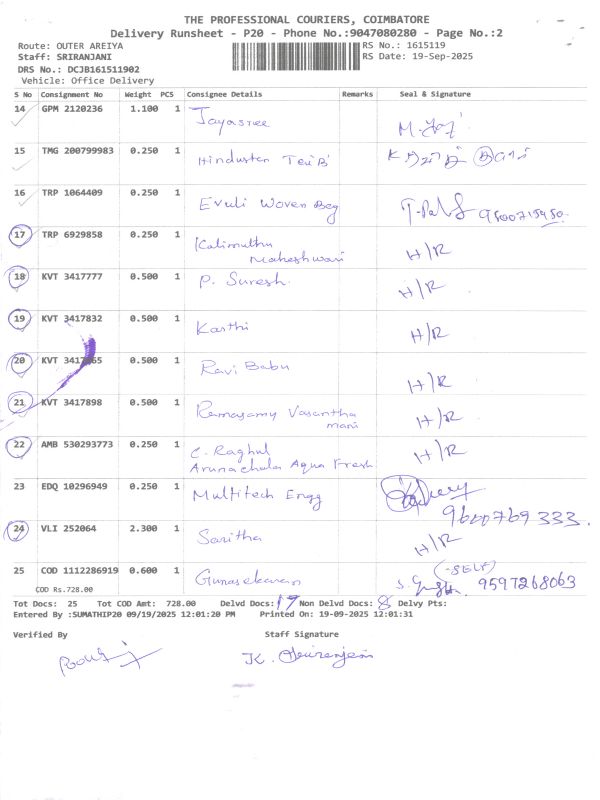 THE PROFESSIONAL COURIERS, COIMBATORE
Delivery Runsheet - P20 - Phone No.:9047080280 - Page No.:2
Route: OUTER AREIYA RS No.: 1615119
Staff: SRIRANJANI RS Date: 19-Sep-2025
DRS No.: DCJB161511902
Vehicle: Office Delivery
S No Consignment No Weight PCS Consignee Details Remarks Seal & Signature
14 GPM 2120236 1.100 1 Jayasree
15 TMG 200799983 0.250 1 Hindustan
16 TRP 1064409 0.250 1 Evuli Woven Beg 9500715950
17 TRP 6929858 0.250 1 Kalimuthu H/R
Maheshwari
18 KVT 3417777 0.500 1 P. Suresh H/R
19 KVT 3417832 0.500 1 Karthi H/R
20 KVT 0.500 1 Ravi Babu H/R
21 KVT 3417898 0.500 1 Ramasamy Vasantha H/R
mani
22 AMB 530293773 0.250 1 C. Raghul H/R
Arunachala Aqua Fresh
23 EDQ 10296949 0.250 1 Multitech Engg
9600769333.
24 VLI 252064 2.300 1 Saritha H/R
25 COD 1112286919 0.600 1 Gunasekaran (-SELF) 9597268063
COD Rs.728.00
Tot Docs: 25 Tot COD Amt: 728.00 Delvd Docs: 17 Non Delvd Docs: 8 Delvy Pts:
Entered By :SUMATHIP20 09/19/2025 12:01:20 PM Printed On: 19-09-2025 12:01:31
Verified By Staff Signature